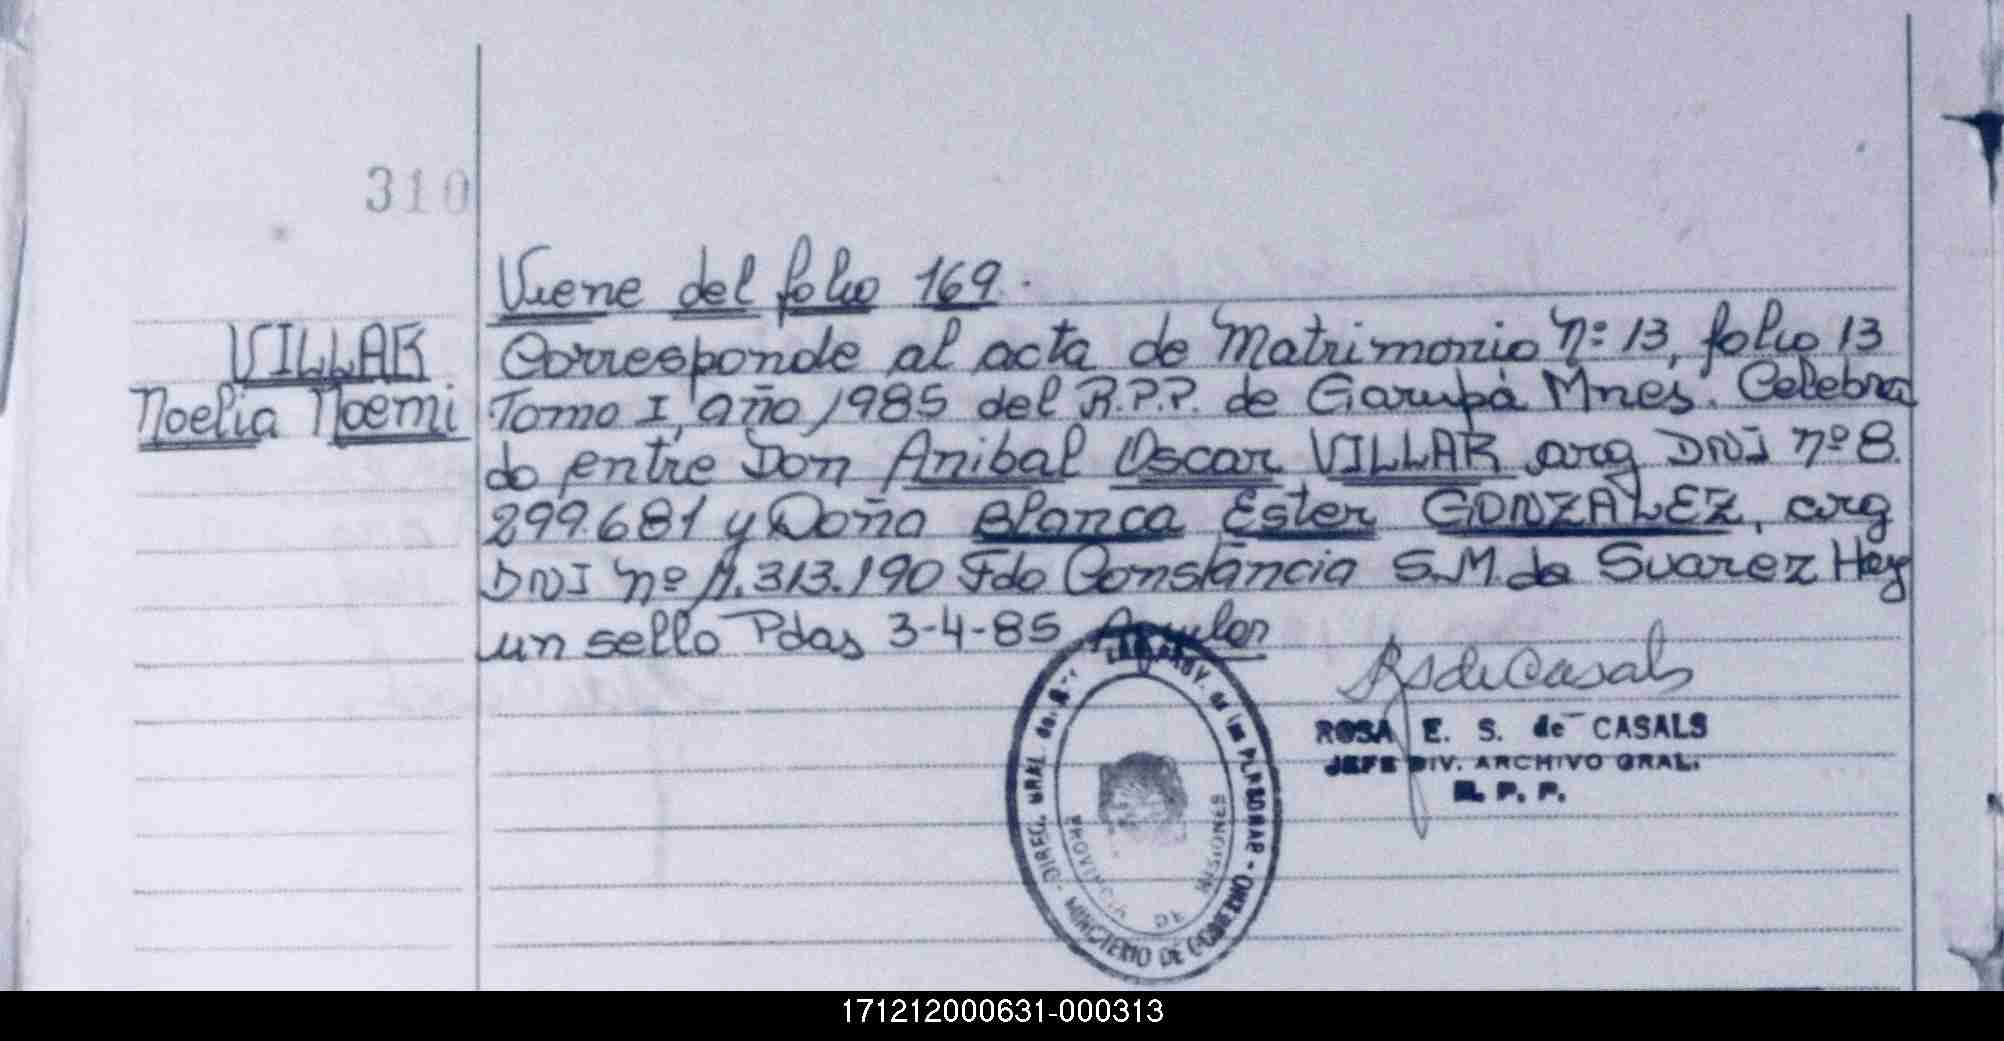 310
Viene del folio 169.
VILLAR
Noelia Noemi
Corresponde al acta de Matrimonio Nº 13, folio 13
Tomo I, año 1985 del R.P.P. de Garupá Mnes. Celebra
do entre Don Anibal Oscar VILLAR arg DNI nº 8.
299.681 y Doña Blanca Ester GONZALEZ, arg
DNI nº 11.313.190 Fdo Constancia S.M. de Suarez Hay
un sello Pdas 3-4-85
RS de Casals
ROSA E. S. de CASALS
JEFE DIV. ARCHIVO GRAL.
R. P. P.
DIREC. GRAL. de las PERSONAS - MINISTERIO DE GOBIERNO
PROVINCIA DE MISIONES
171212000631-000313